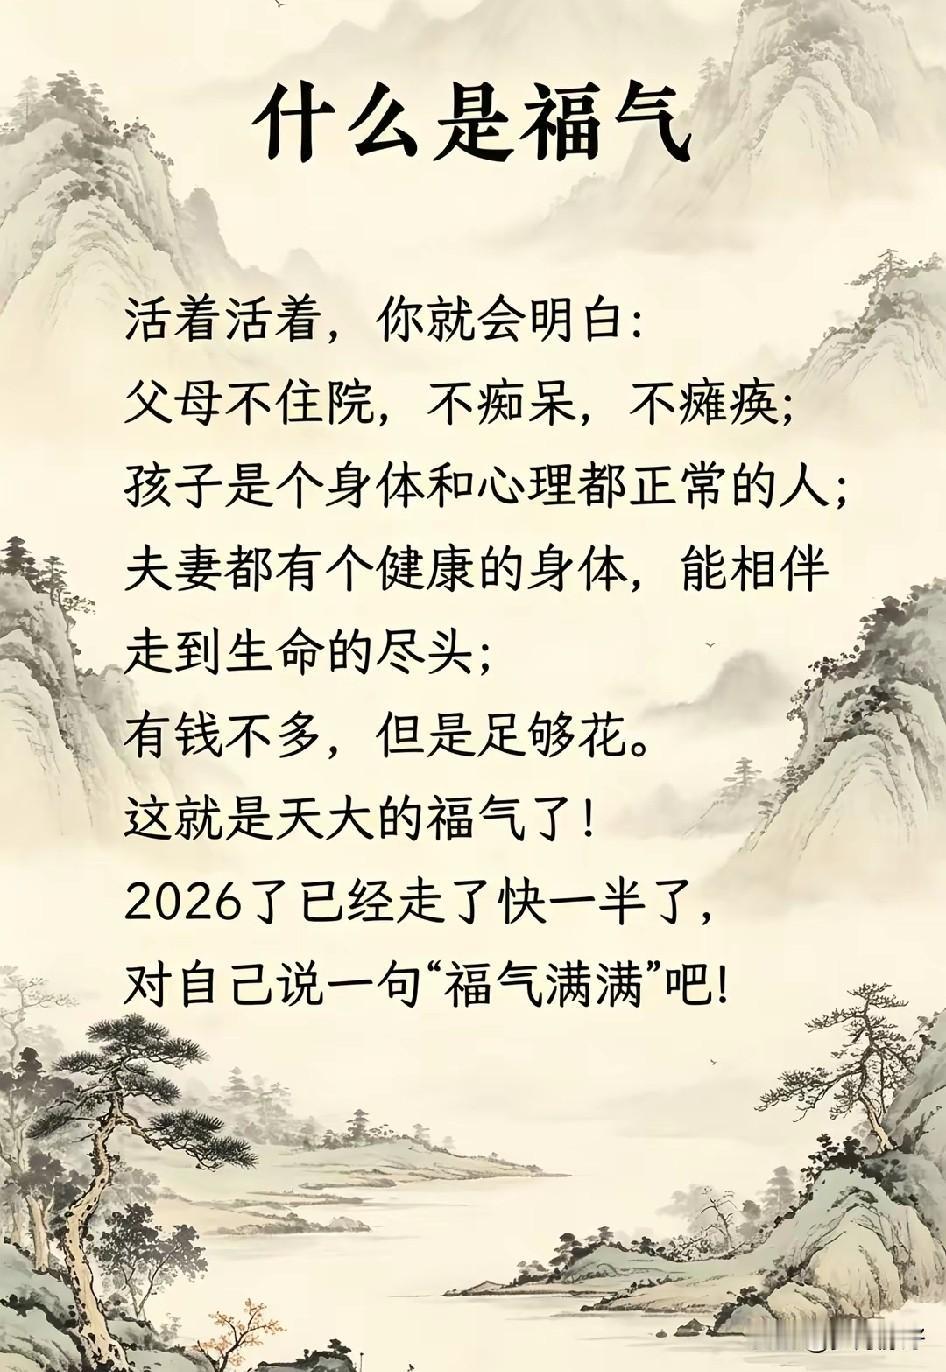 什么是福气
活着活着，你就会明白：
父母不住院，不痴呆，不瘫痪；
孩子是个身体和心理都正常的人；
夫妻都有个健康的身体，能相伴
走到生命的尽头；
有钱不多，但是足够花。
这就是天大的福气了！
2026了已经走了快一半了，
对自己说一句“福气满满”吧！